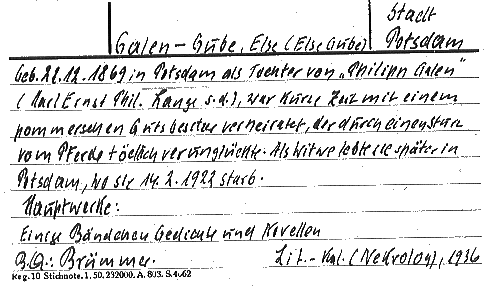 Stadt
Galen-Gube, Else (Else Gube) Potsdam
Geb. 22.12.1869 in Potsdam als Tochter von „Philipp Galen"
(Karl Ernst Phil. Lange s.d.), war kurze Zeit mit einem
pommerschen Gutsbesitzer verheiratet, der durch einen Sturz
vom Pferde tödlich verunglückte. Als Witwe lebte sie später in
Potsdam, wo sie 14.2.1922 starb.
Hauptwerke:
Einige Bändchen Gedichte und Novellen
B.Q.: Brümmer. Lit.-Kal. (Nekrolog), 1936
Reg. 10 Stichnote. 1. 50. 232000. A. 803. S. 4062